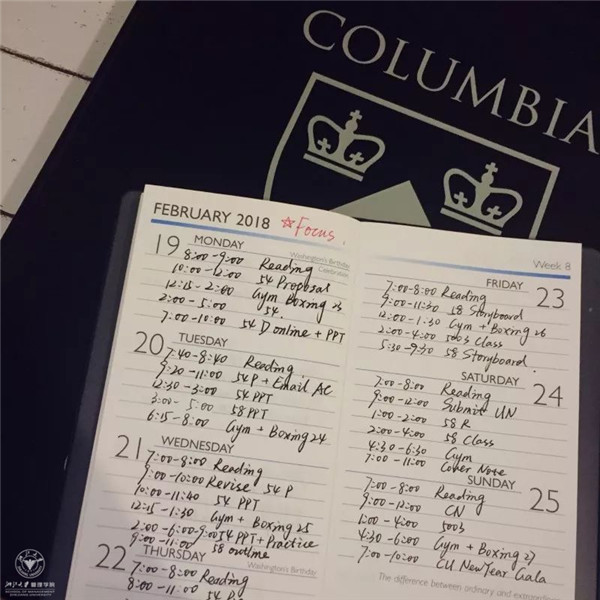 COLUMBIA
FEBRUARY 2018 ☆Focus.
19 MONDAY
Washington's Birthday
Celebration
8:00-9:00 Reading
10:00-12:00 54 Proposal
12:15-2:00 Gym Boxing 23
2:00-5:00 54.
7:00-10:00 54 D online + PPT
20 TUESDAY
7:40-8:40 Reading
9:20-11:00 54 P + Email AC
12:30-3:00 54 PPT
3:00-5:00 58 PPT
6:15-8:00 Gym + Boxing 24
21 WEDNESDAY
7:00-8:00 Reading
9:00-10:00 Revise 54 P
10:00-11:40 54 PPT
12:15-1:30 Gym + Boxing 25
2:00-6:00-9:00 54 PPT + Practice
9:00-11:00 58 outline
22 THURSDAY
Washington's Birthday
7:00-8:00 Reading
8:00-11:00 54
Week 8
FRIDAY 23
7:00-8:00 Reading
9:00-11:30 58 Storyboard
12:00-1:30 Gym + Boxing 26
2:00-4:00 5003 Class
5:30-9:30 58 Storyboard.
SATURDAY 24
7:00-8:00 Reading
9:00-12:00 Submit UN
1:00-2:00 58 R
2:00-4:00 58 Class
4:30-6:30 Gym
7:00-11:00 Cover Note
SUNDAY 25
7:00-8:00 Reading
9:00-12:00 CN
1:00-4:00 5003
4:30-6:00 Gym + Boxing 27
7:00-10:00 CU New Year Gala
The difference between ordinary and extraordinary
浙江大学管理学院
SCHOOL OF MANAGEMENT
ZHEJIANG UNIVERSITY